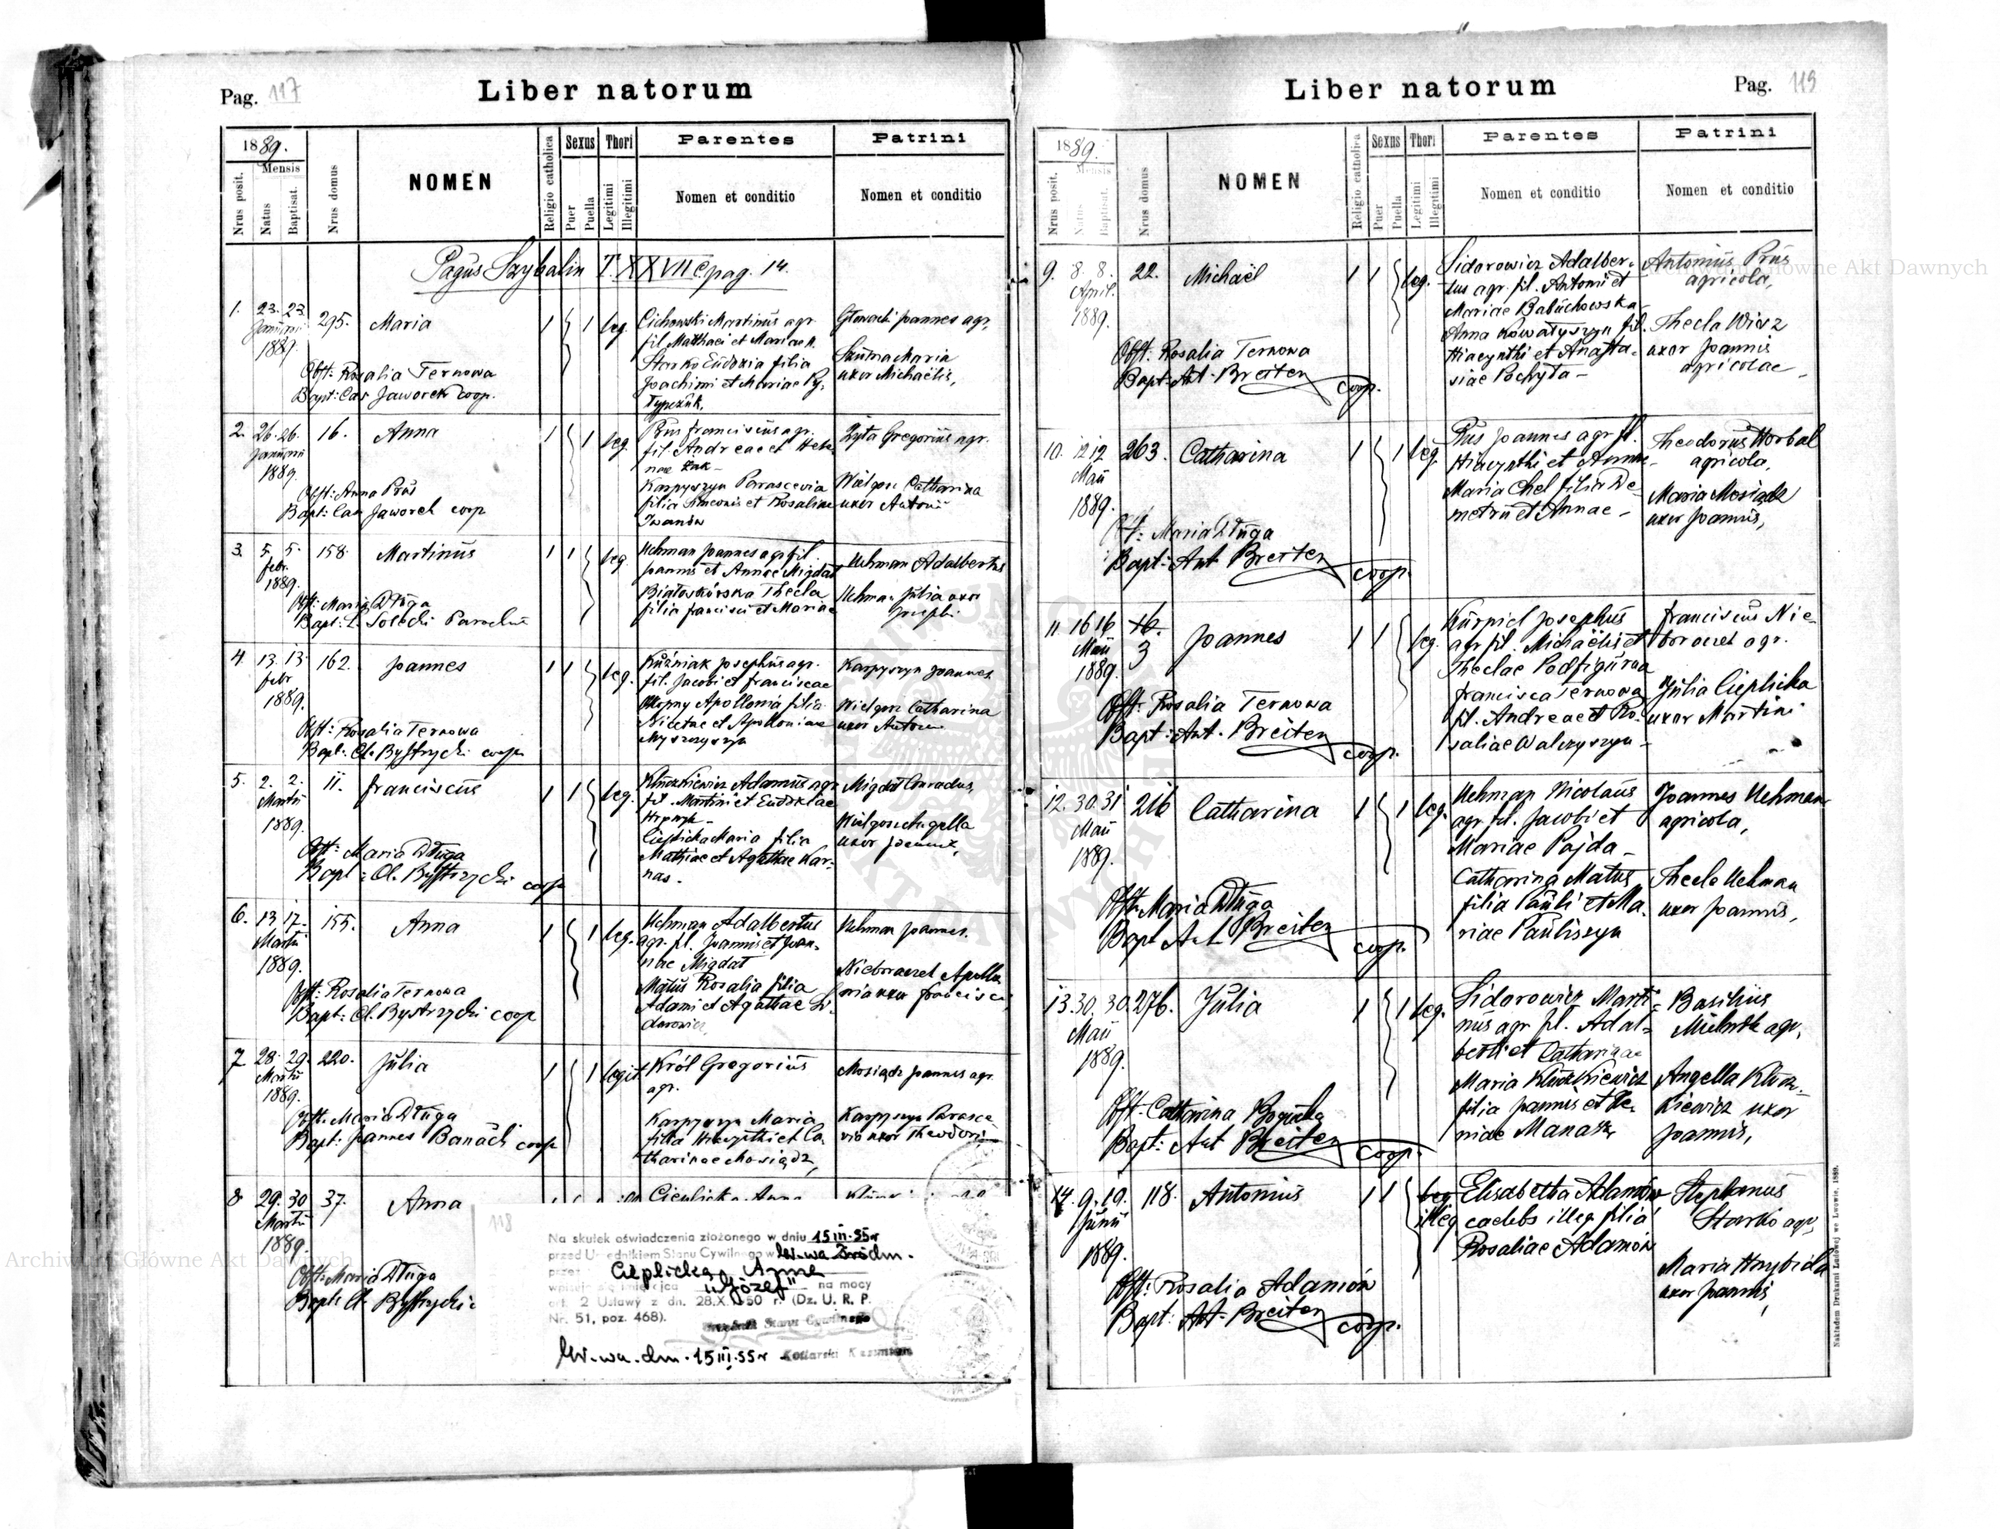 Pag. 117
Liber natorum
1889.
Mensis
Nrus posit.
Natus
Baptisat.
Nrus domus
NOMEN
Religio catholica
Sexus
Puer
Puella
Thori
Legitimi
Illegitimi
Parentes
Nomen et conditio
Patrini
Nomen et conditio
Pagus Szybalin T. XXVII pag. 14.
1. 23. 23. 295. Maria 1 1 leg.
Januarii
1889.
Obst: Rosalia Ternowa
Bapt: Cas Jaworek coop.
Cichowski Martinus agr.
fil. Mathaei et Mariae
Starko Eudoxia filia
Joachimi et Mariae
Głowacki Joannes agr.
Szuma Maria
uxor Michaelis,
2. 26. 26. 16. Anna 1 1 leg.
Januarii
1889.
Obst: Anna Prus
Bapt: Cas Jaworek coop
Prus Franciscus agr.
fil. Andreae et Hele-
nae Żuk -
Karpyszyn Parascevia
filia Simeonis et Rosaliae
Iwanów
Zyta Gregorius agr.
Wielgosz Catharina
uxor Antonii
3. 5. 5. 158. Martinus 1 1 leg.
Febr.
1889.
Obst: Maria Długa
Bapt: Sołecki Parochus
Uchman Joannes agr. fil.
Joannis et Annae Migdał
Białoskórska Thecla
filia Francisci et Mariae
Uchman Adalbertus
Uchman Julia uxor
Josephi
4. 13. 13. 162. Joannes 1 1 leg.
Febr
1889.
Obst: Rosalia Ternowa
Bapt: Cl. Bystrzycki coop
Kuźniak Josephus agr.
fil. Jacobi et Franciscae
Apollonia filia
Nicetae et Apolloniae
Myszczyszyn
Karpyszyn Joannes
Wielgosz Catharina
uxor Antonii
5. 2. 2. 11. Franciscus 1 1 leg.
Martii
1889.
Obst: Maria Długa
Bapt: Cl. Bystrzycki coop
Kluszkiewicz Adamus agr
fil. Martini et Eudoxiae
Hrynyk -
Cieplicka Maria filia
Mathiae et Agathae Kar-
nas.
Migdał Conradus,
Wielgosz Angella
uxor Joannis,
6. 13 17. 155. Anna 1 1 leg.
Martii
1889.
Obst: Rosalia Ternowa
Bapt: Cl. Bystrzycki coop
Uchman Adalbertus
agr. fil. Joannis et Joan-
nae Migdał
Matus Rosalia filia
Adami et Agathae Si-
dorowicz
Uchman Joannes.
Nieboraczek Apollo-
nia uxor Francisci,
7. 28. 29. 220. Julia 1 1 legit.
Martii
1889.
Obst: Maria Długa
Bapt: Joannes Banach coop
Król Gregorius
agr.
Karpyszyn Maria
filia Hiacynthi et Ca-
tharinae Mosiądz,
Mosiądz Joannes agr.
Karpyszyn Parasce-
via uxor Theodori
8 29. 30 37. Anna
Martii
1889.
Obst: Maria Długa
Bapt: Cl. Bystrzycki
Cieplicka Anna
118
Na skutek oświadczenia złożonego w dniu 15 III. 55 r
przed Urzędnikiem Stanu Cywilnego w W-wa Śródm.
przez Cieplicka Anna
wpisuje się imię ojca "Józef" na mocy
art. 2 Ustawy z dn. 28.X.50 r. (Dz. U. R. P.
Nr. 51, poz. 468).
Urzędnik Stanu Cywilnego
W-wa. dn. 15 III. 55 r Kotlarski Kazimierz
Liber natorum
Pag. 119
1889.
Mensis
Nrus posit.
Natus
Baptisat.
Nrus domus
NOMEN
Religio catholica
Sexus
Puer
Puella
Thori
Legitimi
Illegitimi
Parentes
Nomen et conditio
Patrini
Nomen et conditio
9. 8. 8. 22. Michaël 1 1 leg.
April.
1889.
Obst: Rosalia Ternowa
Bapt: Ant. Breiter coop.
Sidorowicz Adalber-
tus agr. fil. Antoni et
Mariae Babuchowska
Anna Kowałyszyn fil.
Hiacynthi et Anasta-
siae Pochyła -
Antonius Prus
agricola,
Thecla Wisz
uxor Joannis
agricolae -
10. 12 12 263. Catharina 1 1 leg.
Maii
1889.
Obst: Maria Długa
Bapt: Ant Breiter coop.
Prus Joannes agr. fil.
Hiacynthi et Annae -
Maria Chel filia De-
metrii et Annae -
Theodorus Worbal
agricola,
Maria Mosiądz
uxor Joannis,
11 16 16 16. Joannes 1 1 leg.
Maii 3
1889.
Obst: Rosalia Ternowa
Bapt: Ant. Breiter coop.
Kurpiel Josephus
agr. fil. Michaelis et
Theclae Podfigurna
Francisca Ternowa
fil. Andreae et Ro-
saliae Walczyszyn -
Franciscus Nie-
boraczek agr.
Julia Cieplicka
uxor Martini
12. 30. 31 216 Catharina 1 1 leg.
Maii
1889.
Obst: Maria Długa
Bapt Ant Breiter coop.
Uchman Nicolaus
agr. fil. Jacobi et
Mariae Pajda -
Catharina Matus
filia Pauli et Ma-
riae Pauliszyn
Joannes Uchman
agricola,
Thecla Uchman
uxor Joannis,
13. 30. 30. 276. Julia 1 1 leg.
Maii
1889.
Obst: Catharina Bogucka
Bapt: Ant Breiter coop.
Sidorowicz Marti-
nus agr. fil. Adal-
berti et Catharinae
Maria Kluszkiewicz
filia Joannis et Xe-
niae Manaszk
Basilius
Mielnik agr.
Angella Klusz-
kiewicz uxor
Joannis,
14. 9. 19. 118. Antonius 1 1 leg
Junii illeg
1889.
Obst: Rosalia Adamów
Bapt: Ant. Breiter coop.
Elisabetha Adamów
caelebs illeg. filia
Rosaliae Adamów
Stephanus
Starko agr,
Maria Hnybida
uxor Joannis,
Nakładem Drukarni Ludowej we Lwowie. 1889.
Archiwum Główne Akt Dawnych
Archiwum Główne Akt Dawnych